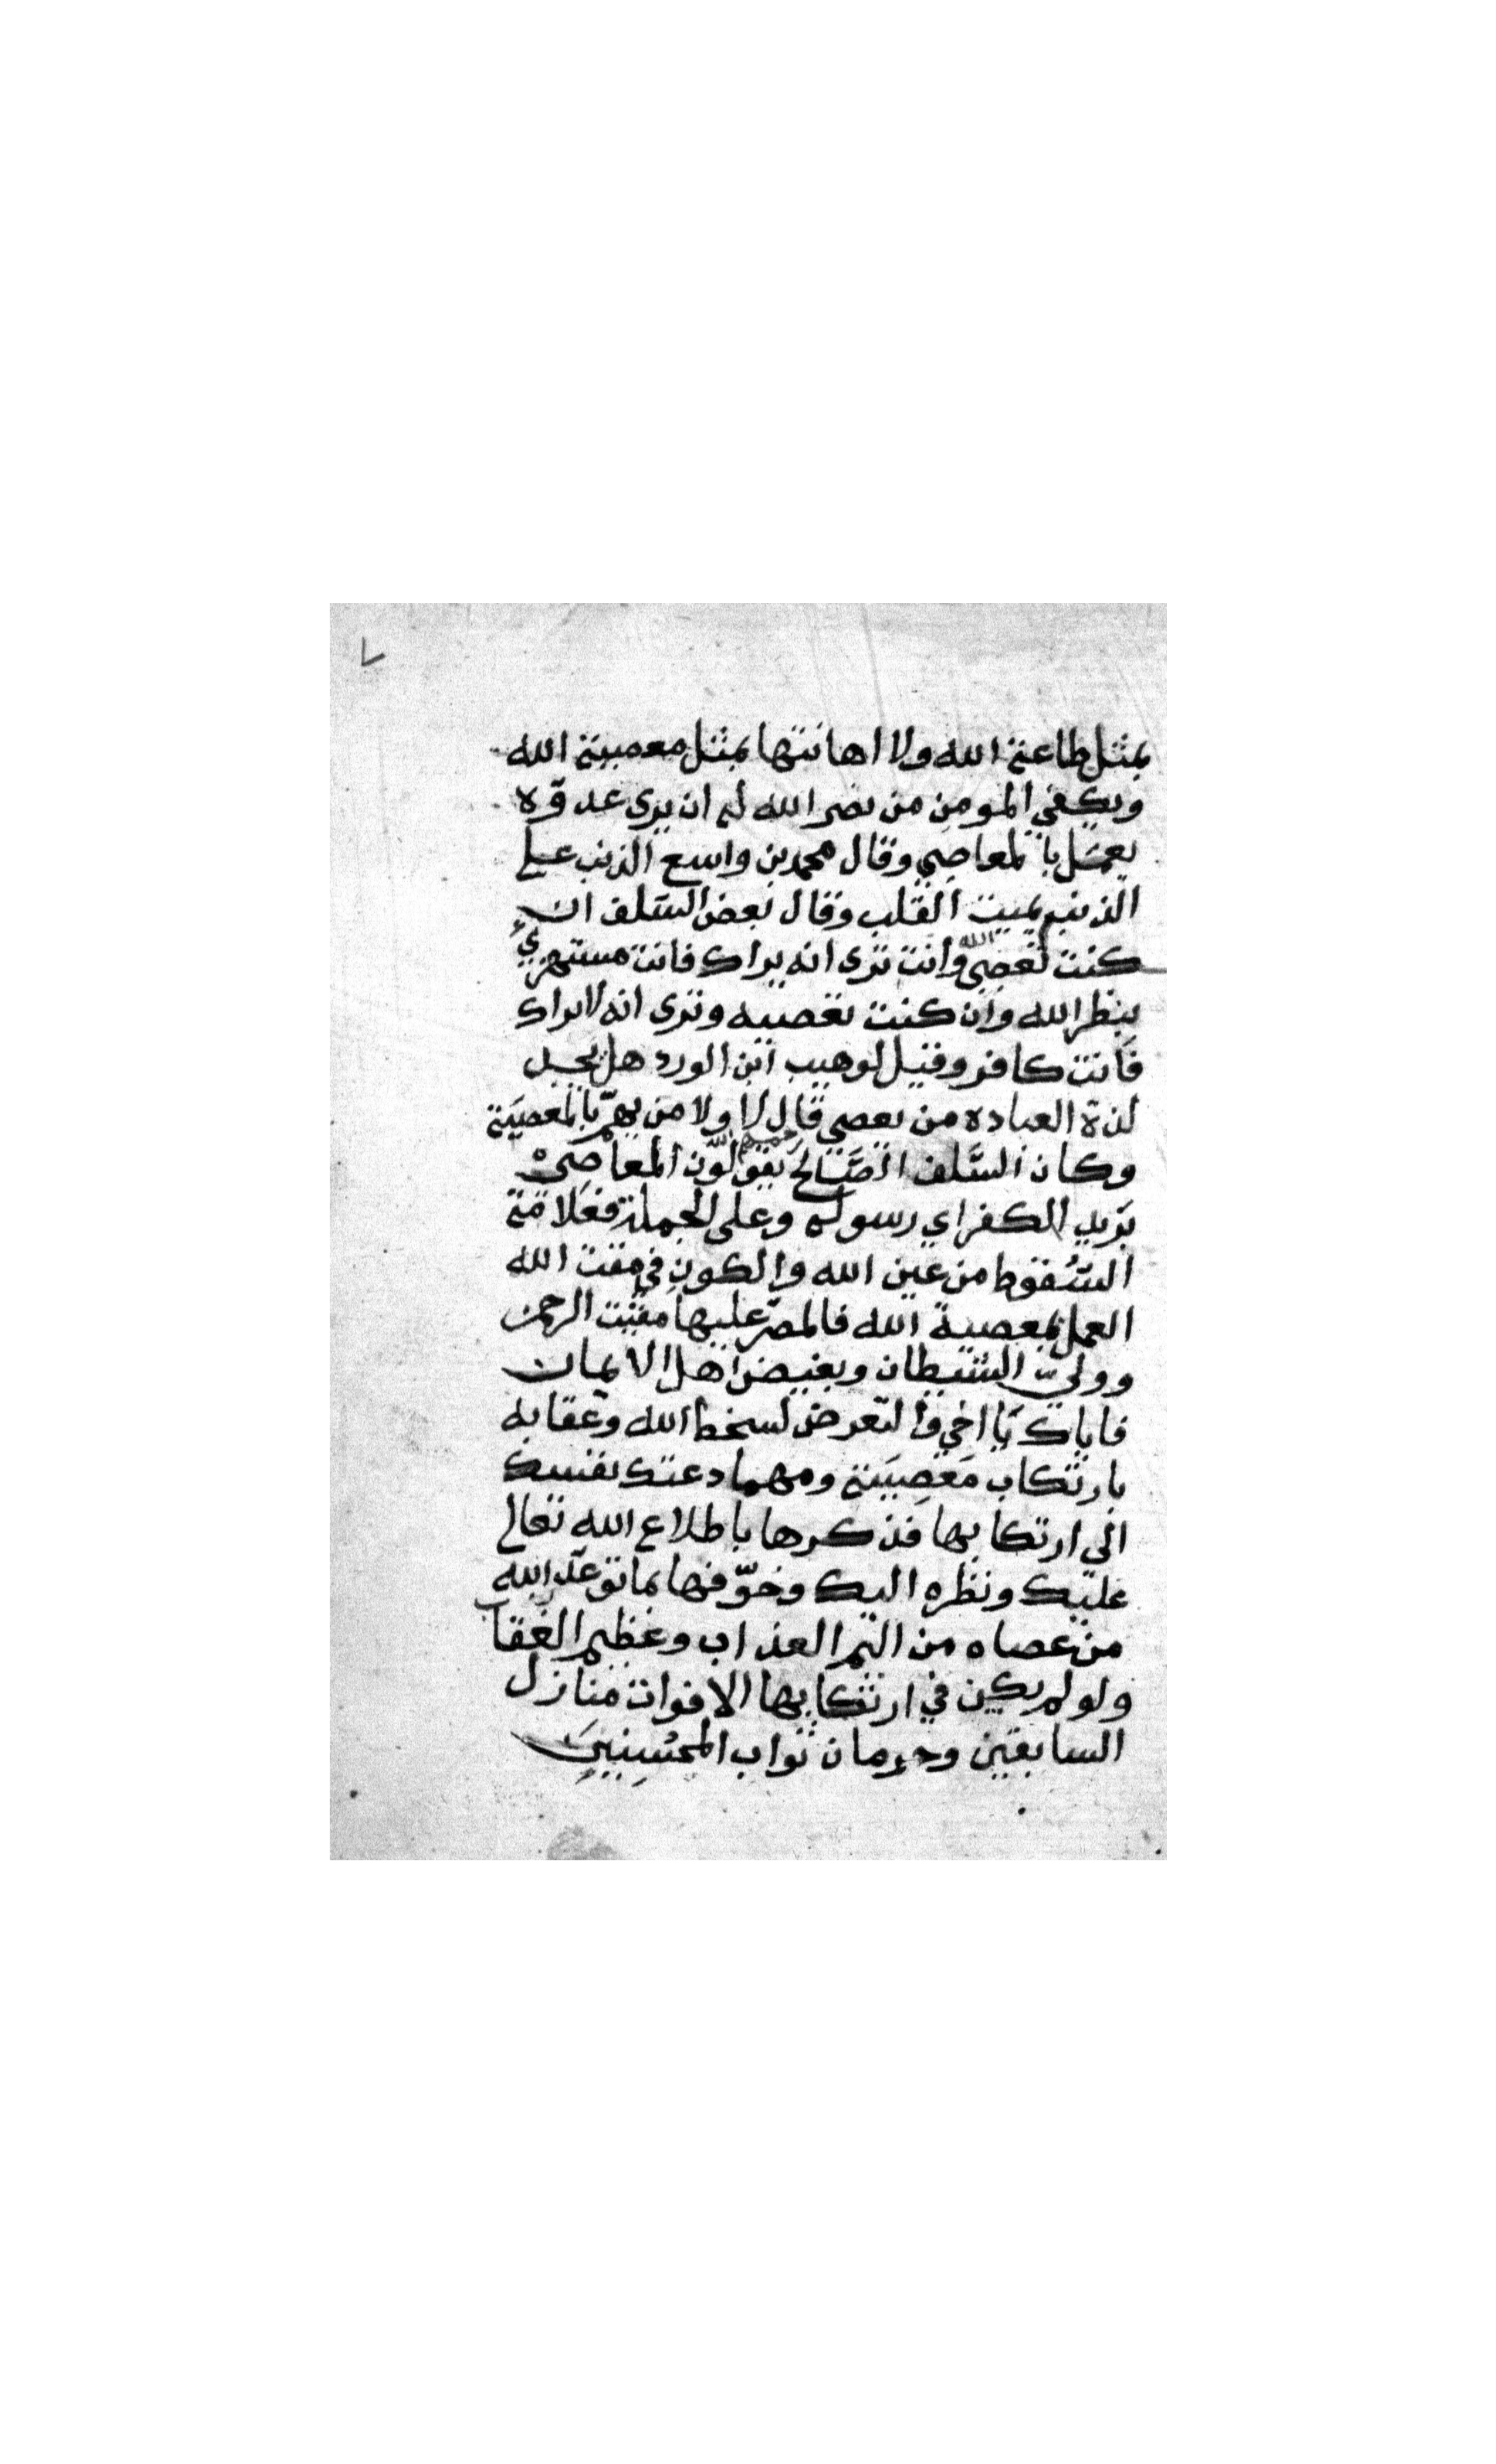 ٧
بمثل طاعة الله ولا اهانتها بمثل معصية الله
ويكفي المومن من نصر الله له ان يرى عدوّه
يعمل بالمعاصي وقال محمد بن واسع الذنب على
الذنب يميت القلب وقال بعض السّلف ان
كنت تعصي الله وانت ترى انه يراك فانت مستهزيٌ
بنظر الله وان كنت تعصيه وترى انه لا يراك
فانت كافر وقيل لوهيب ابن الورد هل يجد
لذة العباده من يعصي قال لا ولا من يهمّ بالمعصية
وكان السَّلف الصَّالح رحمهم الله يقولون المعاصيْ
بَريد الكفر اي رسوله وعلى الجملة فعلامة
السُّقوط من عين الله والكون في مقت الله
العمل بمعصية الله فالمصرّ عليها مقيت الرحمن
ووليّ الشيطان وبغيض اهل الايمان
فاياك يا اخي والتّعرض لسخط الله وعقابه
بارتكاب مَعصِيَته ومهما دعتك نفسك
الى ارتكابها فذكرها باطلاع الله تعالى
عليك ونظره اليك وخوّفها بما توعّد الله
من عصاه من اليم العذاب وعظيم العقاب
ولو لم يكن في ارتكابها الا فوات منازل
السابقين وحرمان ثواب المحسِنِينَ